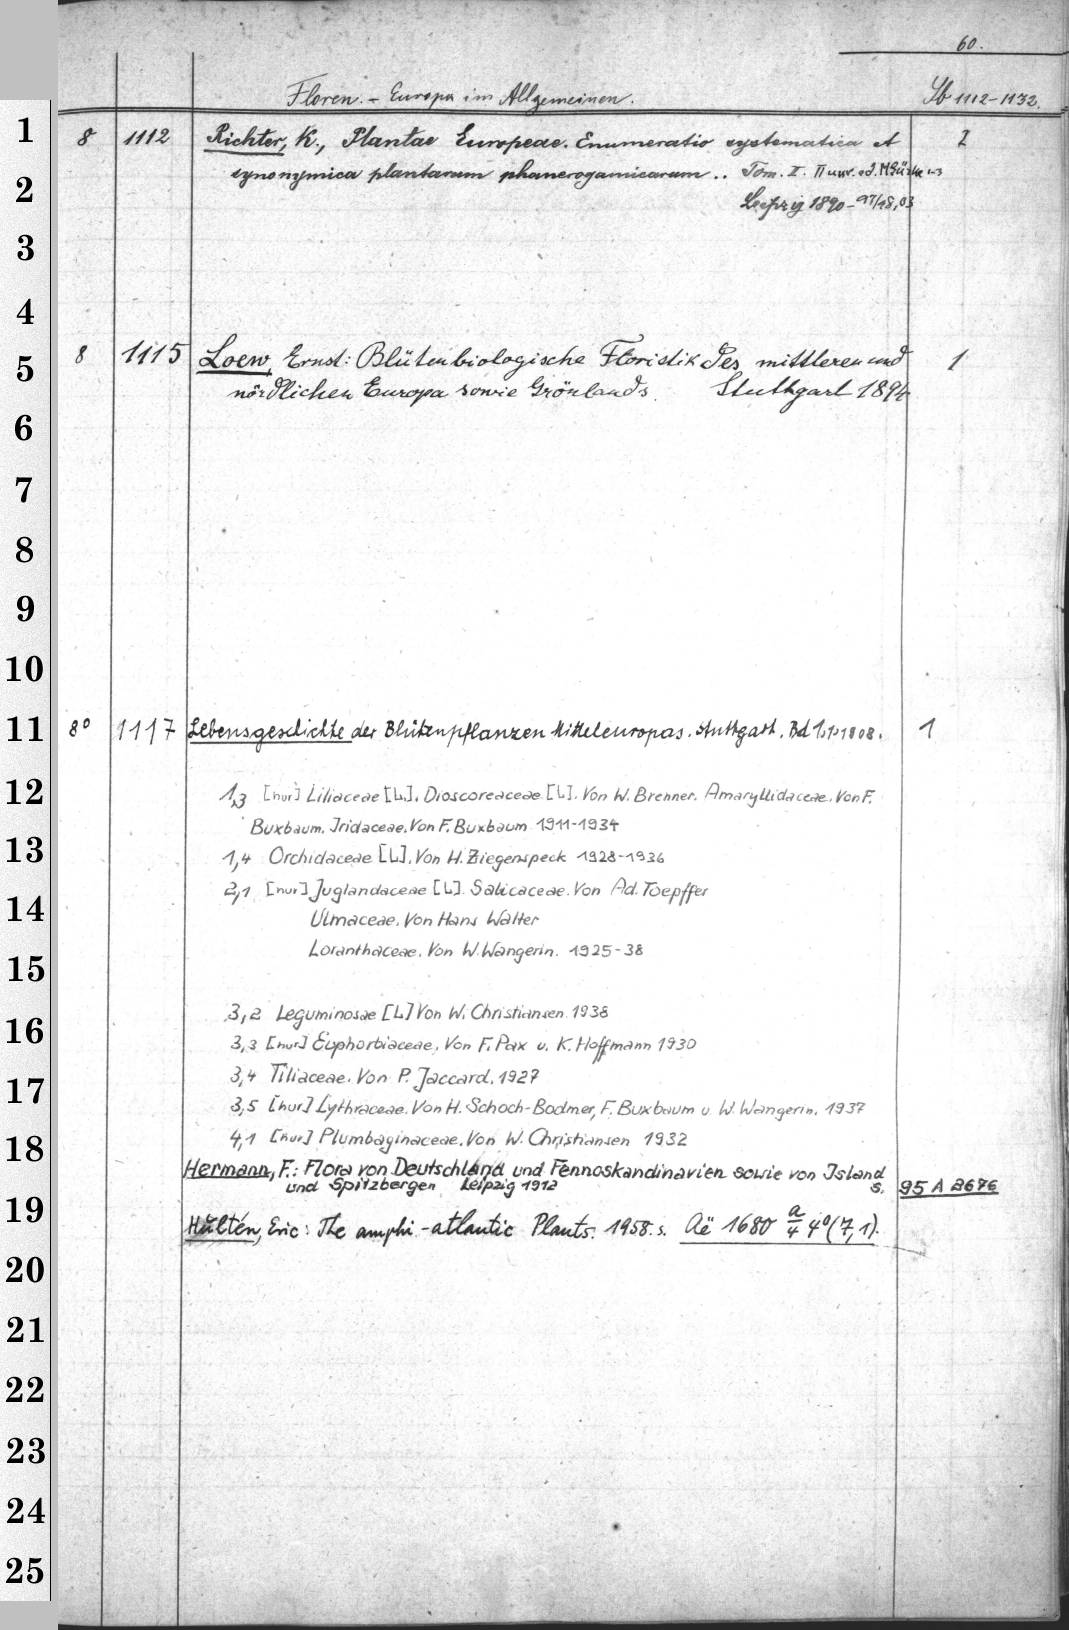 60.
Floren. - Europa im Allgemeinen. Sb 1112-1132.
1
8 1112 Richter, K., Plantae Europeae. Enumeratio systematica et 2
2
synonymica plantarum phanerogamicarum .. Tom. I. II
Leipzig 1890-97/18,03
3
4
8 1115 Loew, Ernst: Blütenbiologische Floristik des mittleren und 1
5
nördlichen Europa sowie Grönlands. Stuttgart 1894
6
7
8
9
10
11
8° 1117 Lebensgeschichte der Blütenpflanzen Mitteleuropas. Stuttgart. Bd 1,1, 1908. 1
12
1,3 [nur] Liliaceae [L]. Dioscoreaceae [L]. Von W. Brenner. Amaryllidaceae. Von F.
Buxbaum. Iridaceae. Von F. Buxbaum 1911-1934
13
1,4 Orchidaceae [L]. Von H. Ziegenspeck 1928-1936
2,1 [nur] Juglandaceae [L]. Salicaceae. Von Ad. Toepffer
14
Ulmaceae. Von Hans Walter
Loranthaceae. Von W. Wangerin. 1925-38
15
3,2 Leguminosae [L] Von W. Christiansen. 1938
16
3,3 [nur] Euphorbiaceae. Von F. Pax u. K. Hoffmann 1930
3,4 Tiliaceae. Von P. Jaccard. 1927
17
3,5 [nur] Lythraceae. Von H. Schoch-Bodmer, F. Buxbaum u. W. Wangerin. 1937
4,1 [nur] Plumbaginaceae. Von W. Christiansen 1932
18
Hermann, F.: Flora von Deutschland und Fennoskandinavien sowie von Island
und Spitzbergen Leipzig 1912 s. 95 A 2676
19
Hultén, Eric: The amphi-atlantic Plants. 1958. s. Aë 1680 a/4 4°(7,1).
20
21
22
23
24
25